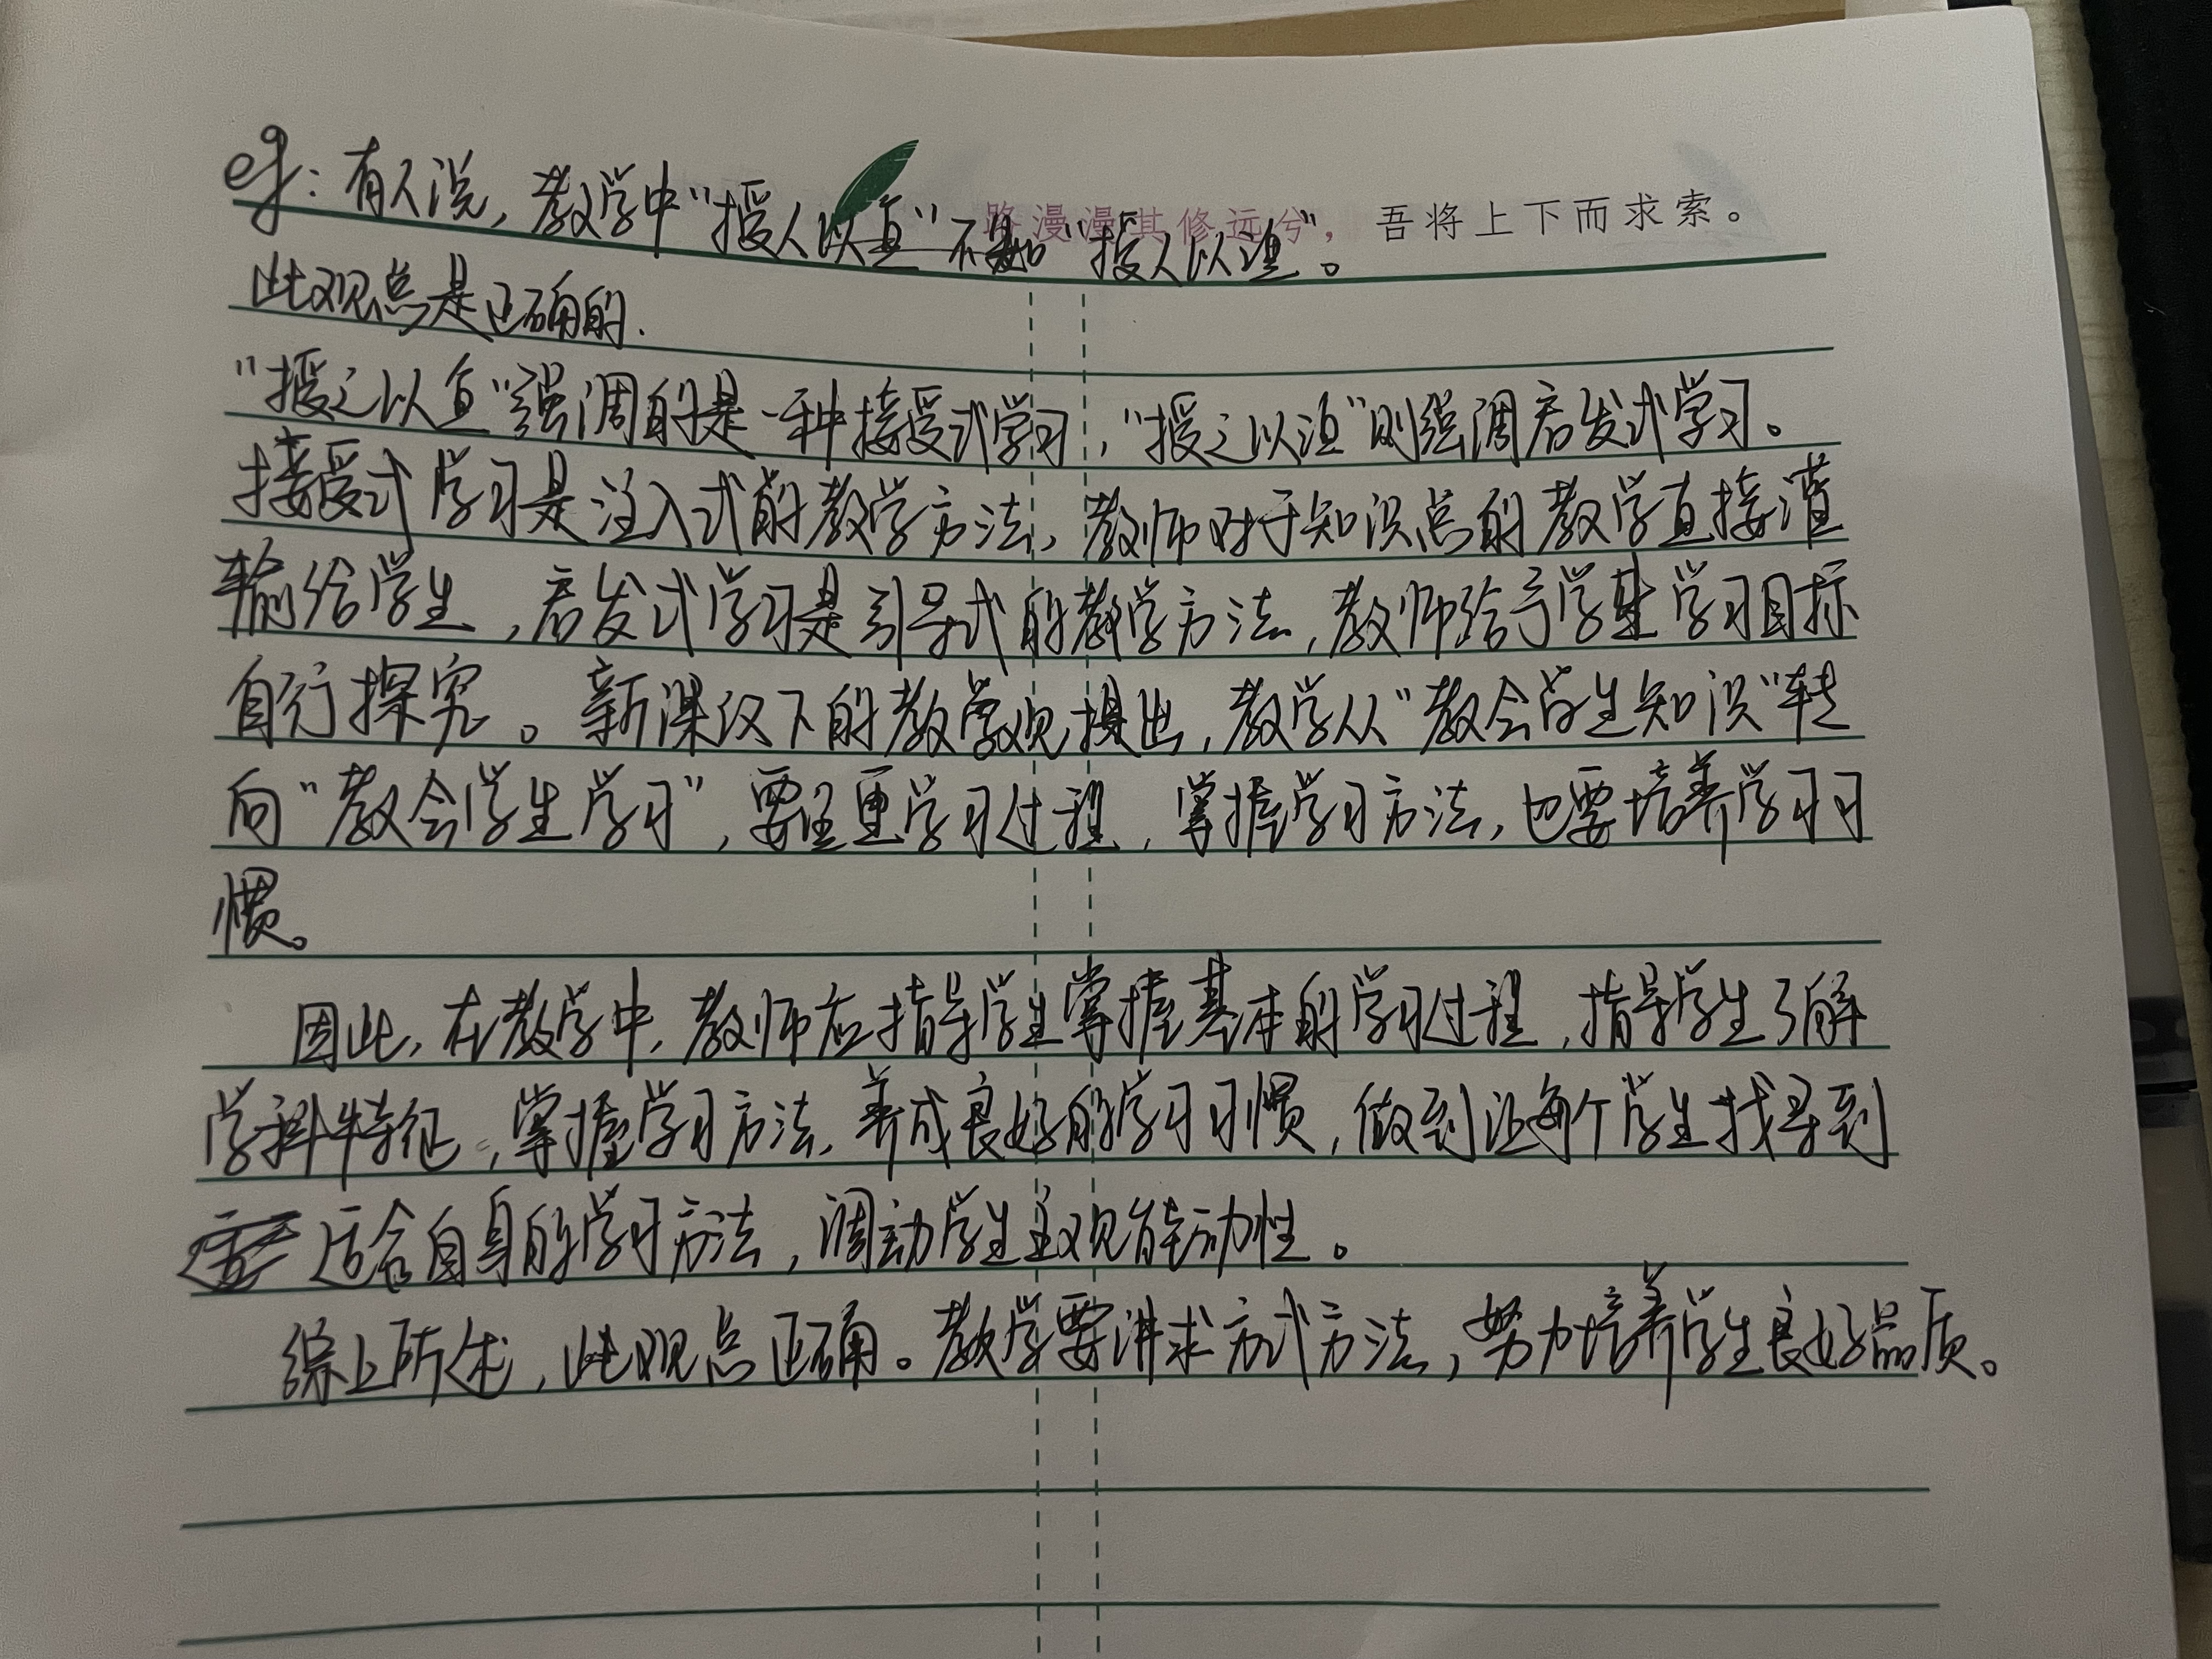 路漫漫其修远兮，吾将上下而求索。
eg：有人说，教学中“授人以鱼”不如“授人以渔”。
此观点是正确的.
“授之以鱼”强调的是一种接受式学习，“授之以渔”则强调启发式学习。
接受式学习是注入式的教学方法，教师对于知识点的教学直接灌
输给学生，启发式学习是引导式的教学方法，教师给予学生学习目标
自行探究。新课改下的教学观提出，教学从“教会学生知识”转
向“教会学生学习”，要注重学习过程，掌握学习方法，也要培养学习习
惯。
因此，在教学中，教师应指导学生掌握基本的学习过程，指导学生了解
学科特征，掌握学习方法，养成良好的学习习惯，做到让每个学生找寻到
适合自身的学习方法，调动学生主观能动性。
综上所述，此观点正确。教学要讲求方式方法，努力培养学生良好品质。